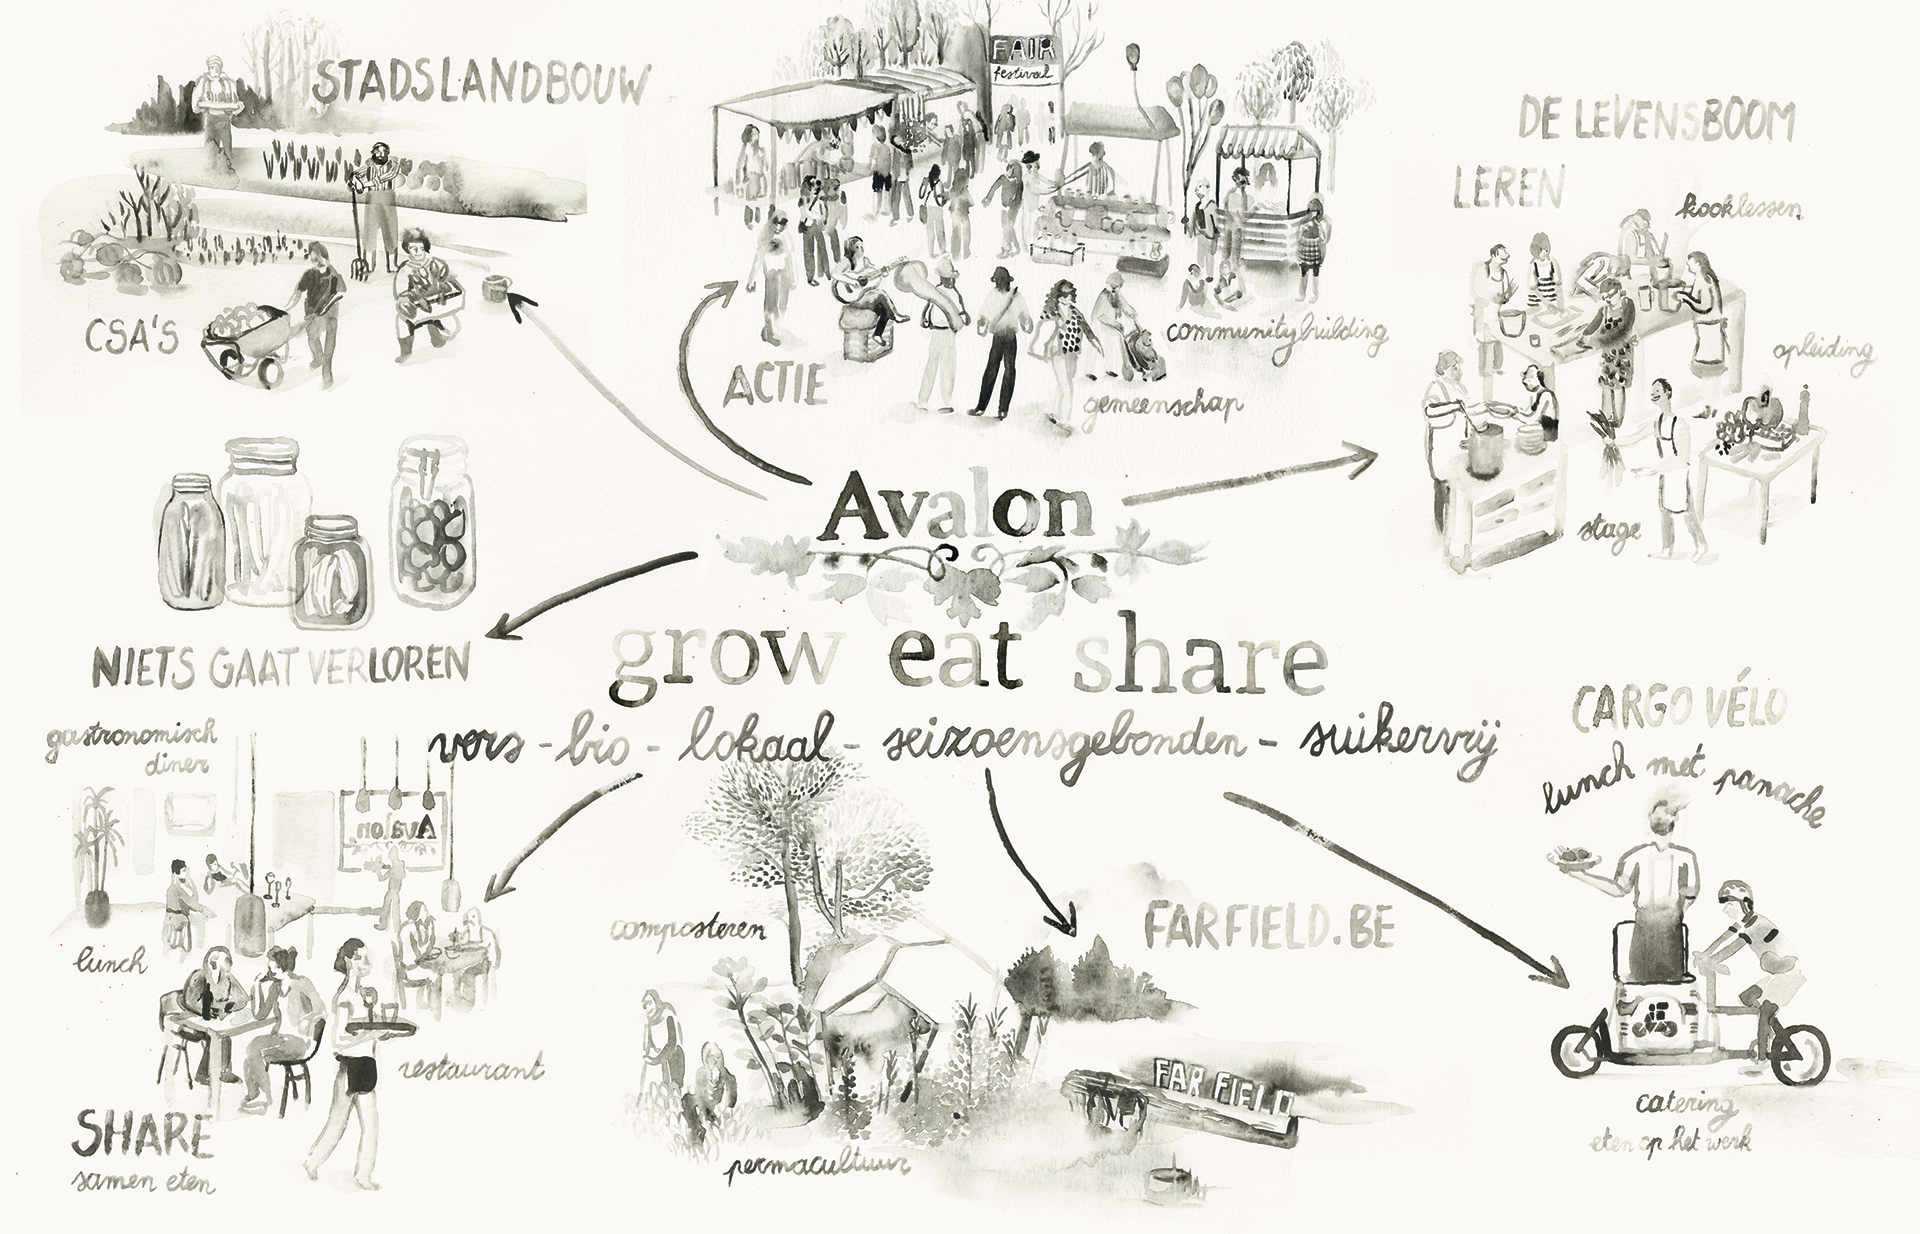 STADSLANDBOUW
CSA'S
FAIR
festival
ACTIE
communitybuilding
gemeenschap
DE LEVENSBOOM
LEREN
kooklessen
opleiding
stage
Avalon
grow eat share
vers - bio - lokaal - seizoensgebonden - suikervrij
NIETS GAAT VERLOREN
gastronomisch
diner
Avalon
lunch
restaurant
SHARE
samen eten
composteren
permacultuur
FARFIELD.BE
FAR FIELD
CARGO VÉLO
lunch met panache
catering
eten op het werk